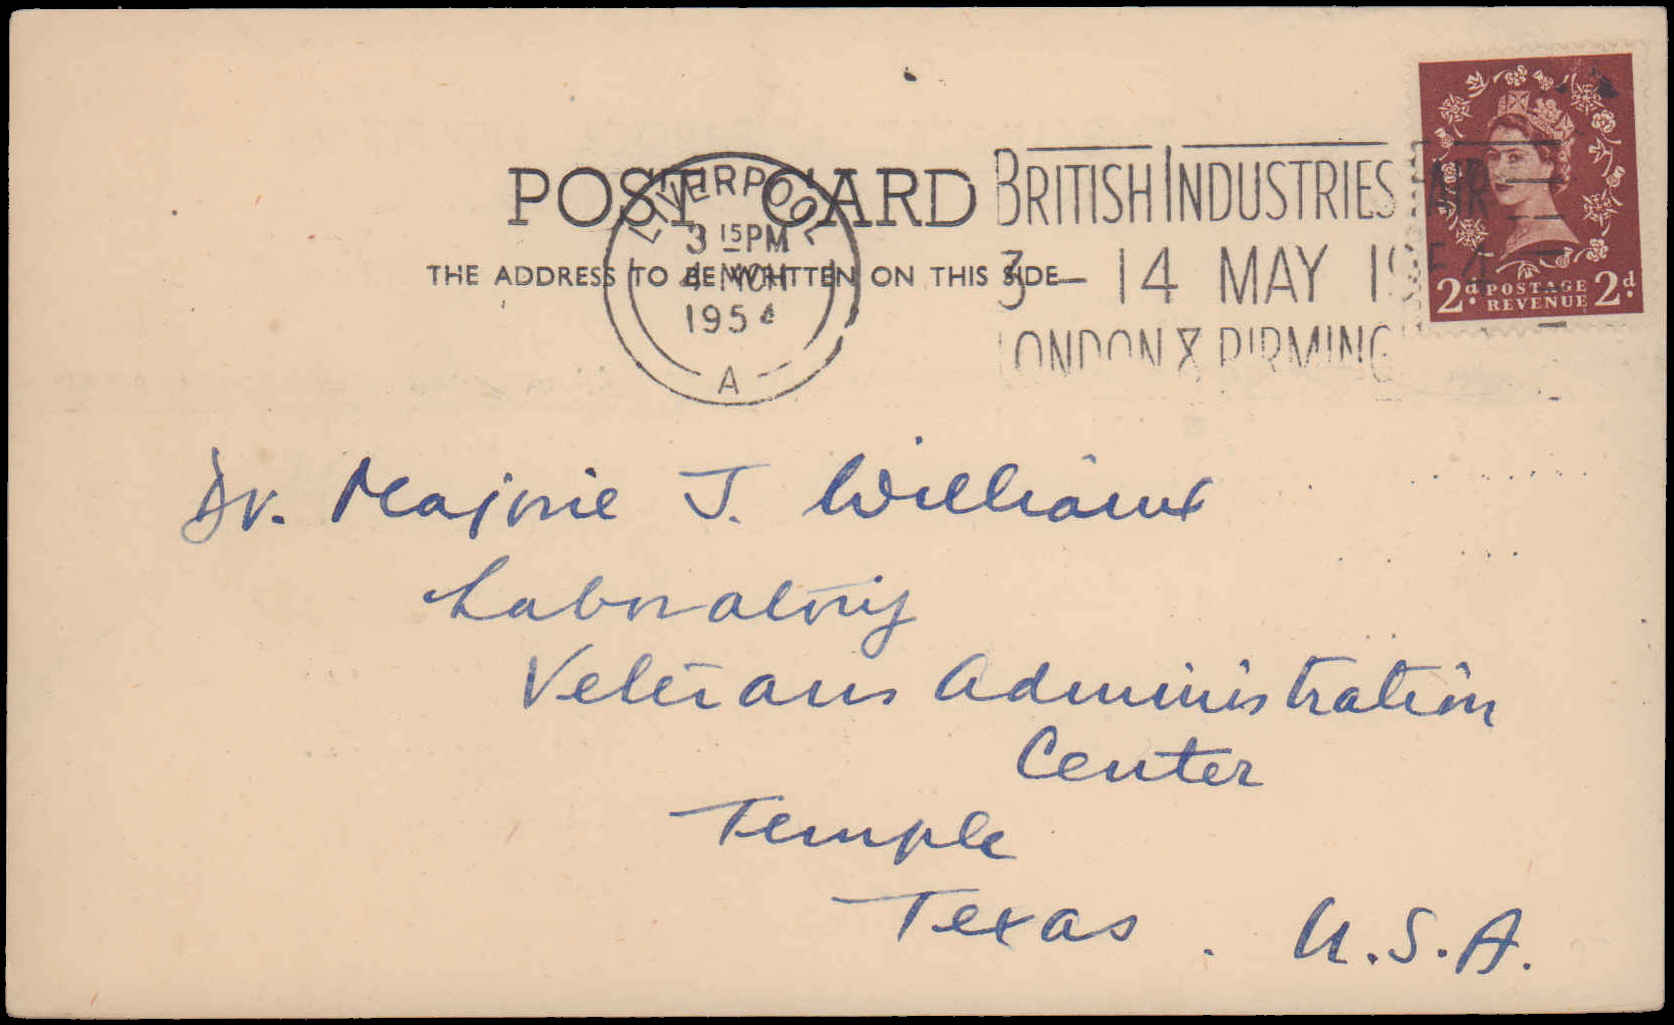 POST CARD
THE ADDRESS TO BE WRITTEN ON THIS SIDE
LIVERPOOL
3 15PM
4 MCH
1954
A
BRITISH INDUSTRIES FAIR
3 - 14 MAY 1954
LONDON & BIRMING
2d POSTAGE REVENUE 2d
Dr. Marjorie J. Williams
Laboratory
Veterans Administration
Center
Temple
Texas. U.S.A.